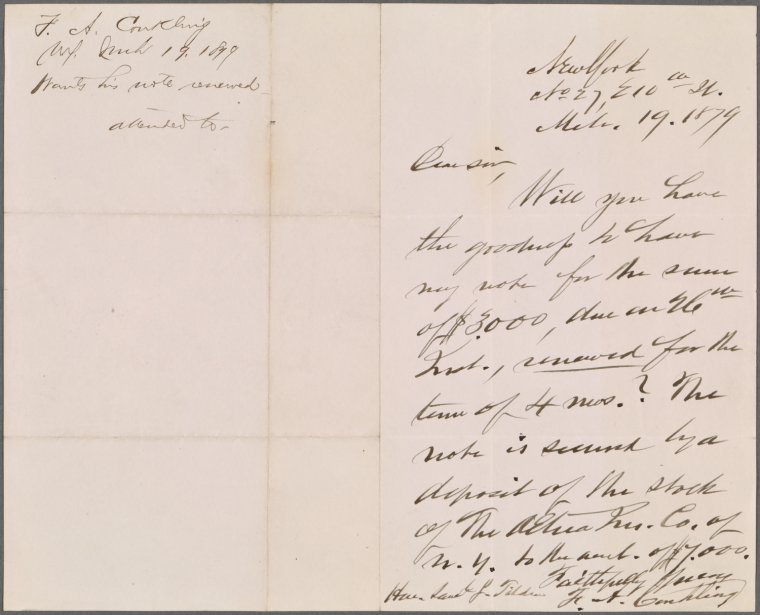 F. A. Conkling
N.Y. Mch 19. 1879
Wants his note renewed
attended to
New York
No 27, E 10th St.
Mch. 19. 1879
Dear sir,
Will you have
the goodness to have
my note for the sum
of $3.000, due on 26th
Inst., renewed for the
term of 4 mos.? The
note is secured by a
deposit of the stock
of The Aetna Ins. Co. of
N. Y. to the amt. of $7.000.
Faithfully Yours
F. A. Conkling
Hon. Saml J. Tilden